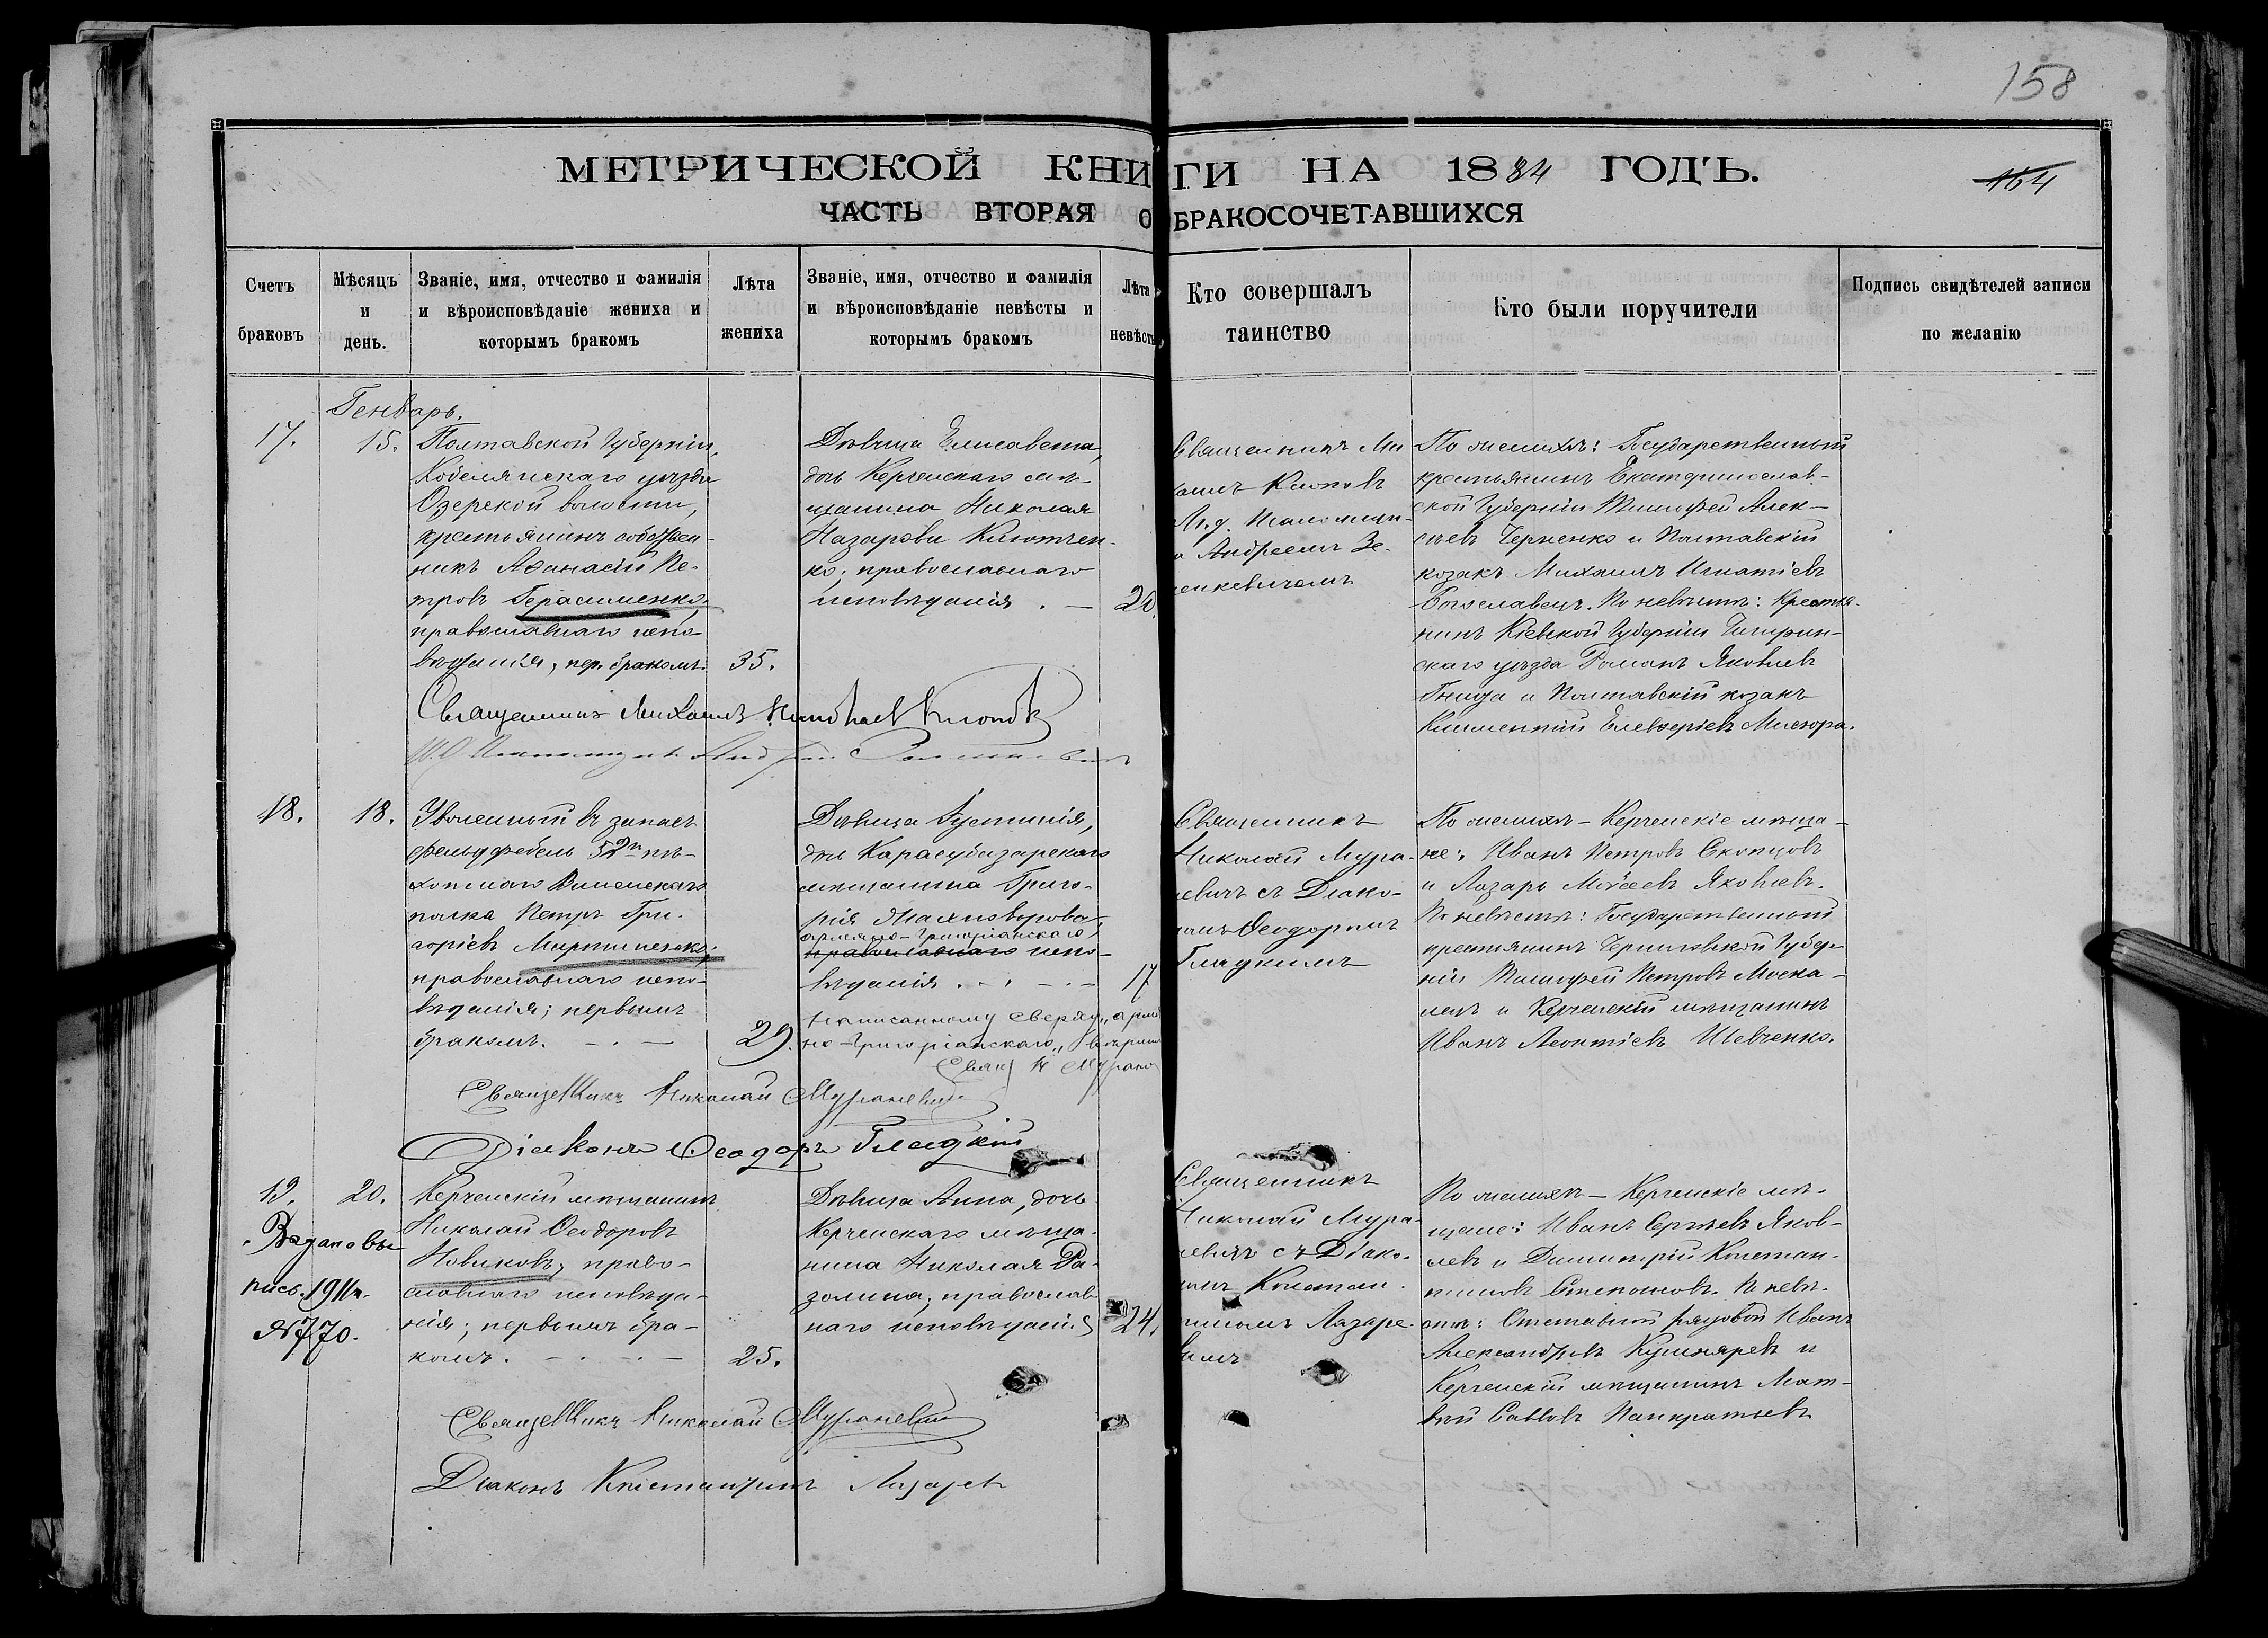 158
МЕТРИЧЕСКОЙ КНИГИ НА 1884 ГОДЪ.
164
ЧАСТЬ ВТОРАЯ О БРАКОСОЧЕТАВШИХСЯ
Счетъ браковъ
Мѣсяцъ и день.
Званіе, имя, отчество и фамилія и вѣроисповѣданіе жениха и которымъ бракомъ
Лѣта жениха
Званіе, имя, отчество и фамилія и вѣроисповѣданіе невѣсты и которымъ бракомъ
Лѣта невѣсты
Кто совершалъ таинство
Кто были поручители
Подпись свидѣтелей записи по желанію
Генварь.
17.
15.
Полтавской Губерніи,
Кобелянскаго уѣзда
Озерской волости,
крестьянинъ собствен-
никъ Аѳанасій Пе-
тровъ Герасименко,
православнаго испо-
вѣданія, пер. бракомъ.
35.
Дѣвица Елисавета,
дочь Керченскаго мѣ-
щанина Николая
Назарова
ко; православнаго
исповѣданія . —
20.
Священникъ Ми
хаилъ Клоповъ
И.д. Псаломщи-
Андреемъ Зе-
ленкевичемъ
По женихѣ: Государственный
крестьянинъ Екатеринослав-
ской Губерніи Тимофей Алек-
сѣевъ Черненко и Полтавскій
козакъ Михаилъ Игнатіевъ
Богославецъ. По невѣстѣ: Крестья-
нинъ Кіевской Губерніи Чигирин-
скаго уѣзда Романъ Яковлевъ
Гнида и Полтавскій козакъ
Климентій Елевѳеріевъ Мисюра.
Священникъ Михаилъ Клоповъ
И.д. Псаломщика Андрей
18.
18.
Уволенный въ запасъ
фельдфебель 52го пѣ-
хотнаго Виленскаго
полка Петръ Гри-
горіевъ Мартыненко;
православнаго испо-
вѣданія; первымъ
бракомъ. — . —
29.
Дѣвица Іустинія,
дочь Карасубазарскаго
мѣщанина Григо-
рія
армяно-Григоріанскаго
православнаго испо-
вѣданія . — . — . —
17
Написанному сверху „армя
но-Григоріанскаго„ вѣрить
Свящ Н Мурано
Священникъ
Николай Мура-
невичъ съ Діако-
номъ Ѳеодоромъ
Гладкимъ
По женихѣ — Керченскіе мѣща-
не: Иванъ Петровъ Скопцовъ
и Лазарь Моѵсеевъ Яковлевъ.
По невѣстѣ: Государственный
крестьянинъ Черниговской Губер-
ніи Тимофей Петровъ Моска-
лецъ и Керченскій мѣщанинъ
Иванъ Леонтіевъ Шевченко.
Священникъ Николай Мураневичъ
Діаконъ Ѳеодоръ Гладкій
19.
20.
Керченскій мѣщанинъ
Николай Ѳеодоровъ
Новиковъ, право-
славнаго исповѣда-
нія; первымъ бра-
комъ. — . — . —
25.
1911г.
№770.
Дѣвица Анна, дочь
Керченскаго мѣща-
нина Николая Ра-
золина, православ-
наго исповѣданія
24.
Священникъ
Николай Мура-
невичъ съ Діако-
номъ Констан-
тиномъ Лазаре-
вымъ
По женихѣ — Керченскіе мѣ-
щане: Иванъ Сергѣевъ Яков-
левъ и Димитрій Констан-
тиновъ Степановъ. По невѣ-
стѣ: Отставной рядовой Иванъ
Александровъ Кушнаревъ и
Керченскій мѣщанинъ Мат-
вѣй Саввовъ Панкратьевъ
Священникъ Николай Мураневичъ
Діаконъ Константинъ Лазаревъ